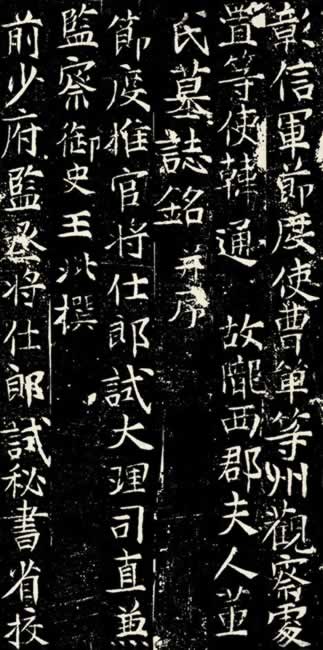 彰信軍節度使曹單等州觀察處
置等使韓通 故隴西郡夫人董
氏墓誌銘 并序
節度推官将仕郎試大理司直兼
監察御史王此撰
前少府監丞将仕郎試秘書省校